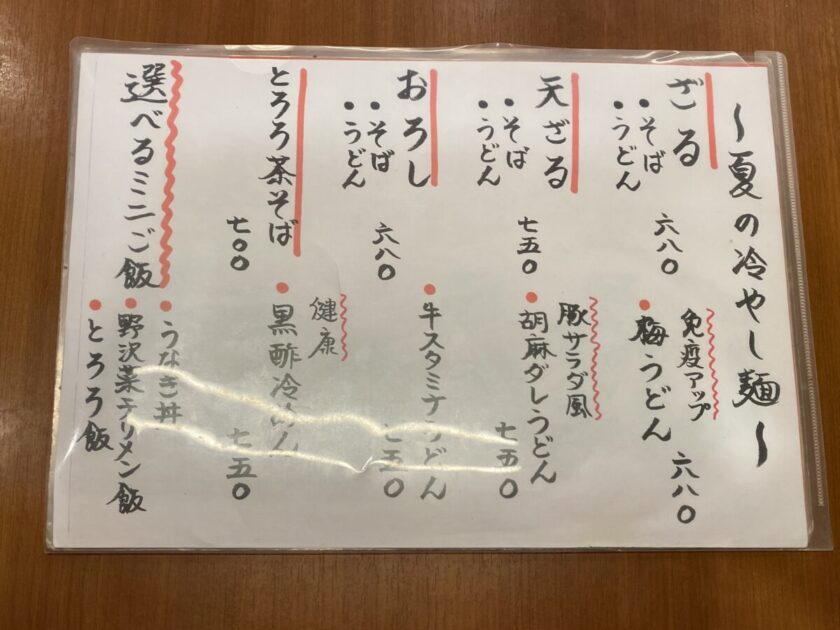 ～夏の冷やし麺～
ざる
・そば
・うどん
六八〇
免疫アップ
・梅うどん
六八〇
天ざる
・そば
・うどん
七五〇
豚サラダ風
・胡麻ダレうどん
七五〇
おろし
・そば
・うどん
六八〇
・牛スタミナうどん
七五〇
とろろ茶そば
七〇〇
健康
・黒酢冷めん
七五〇
選べるミニご飯
・うなぎ丼
・野沢菜チリメン飯
・とろろ飯